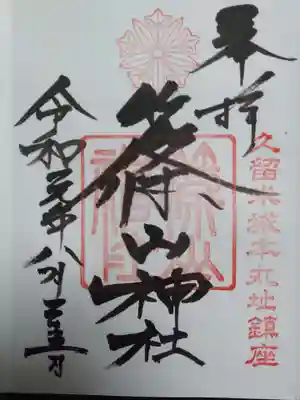 奉拝
久留米城本丸址鎮座
篠山神社
令和元年八月